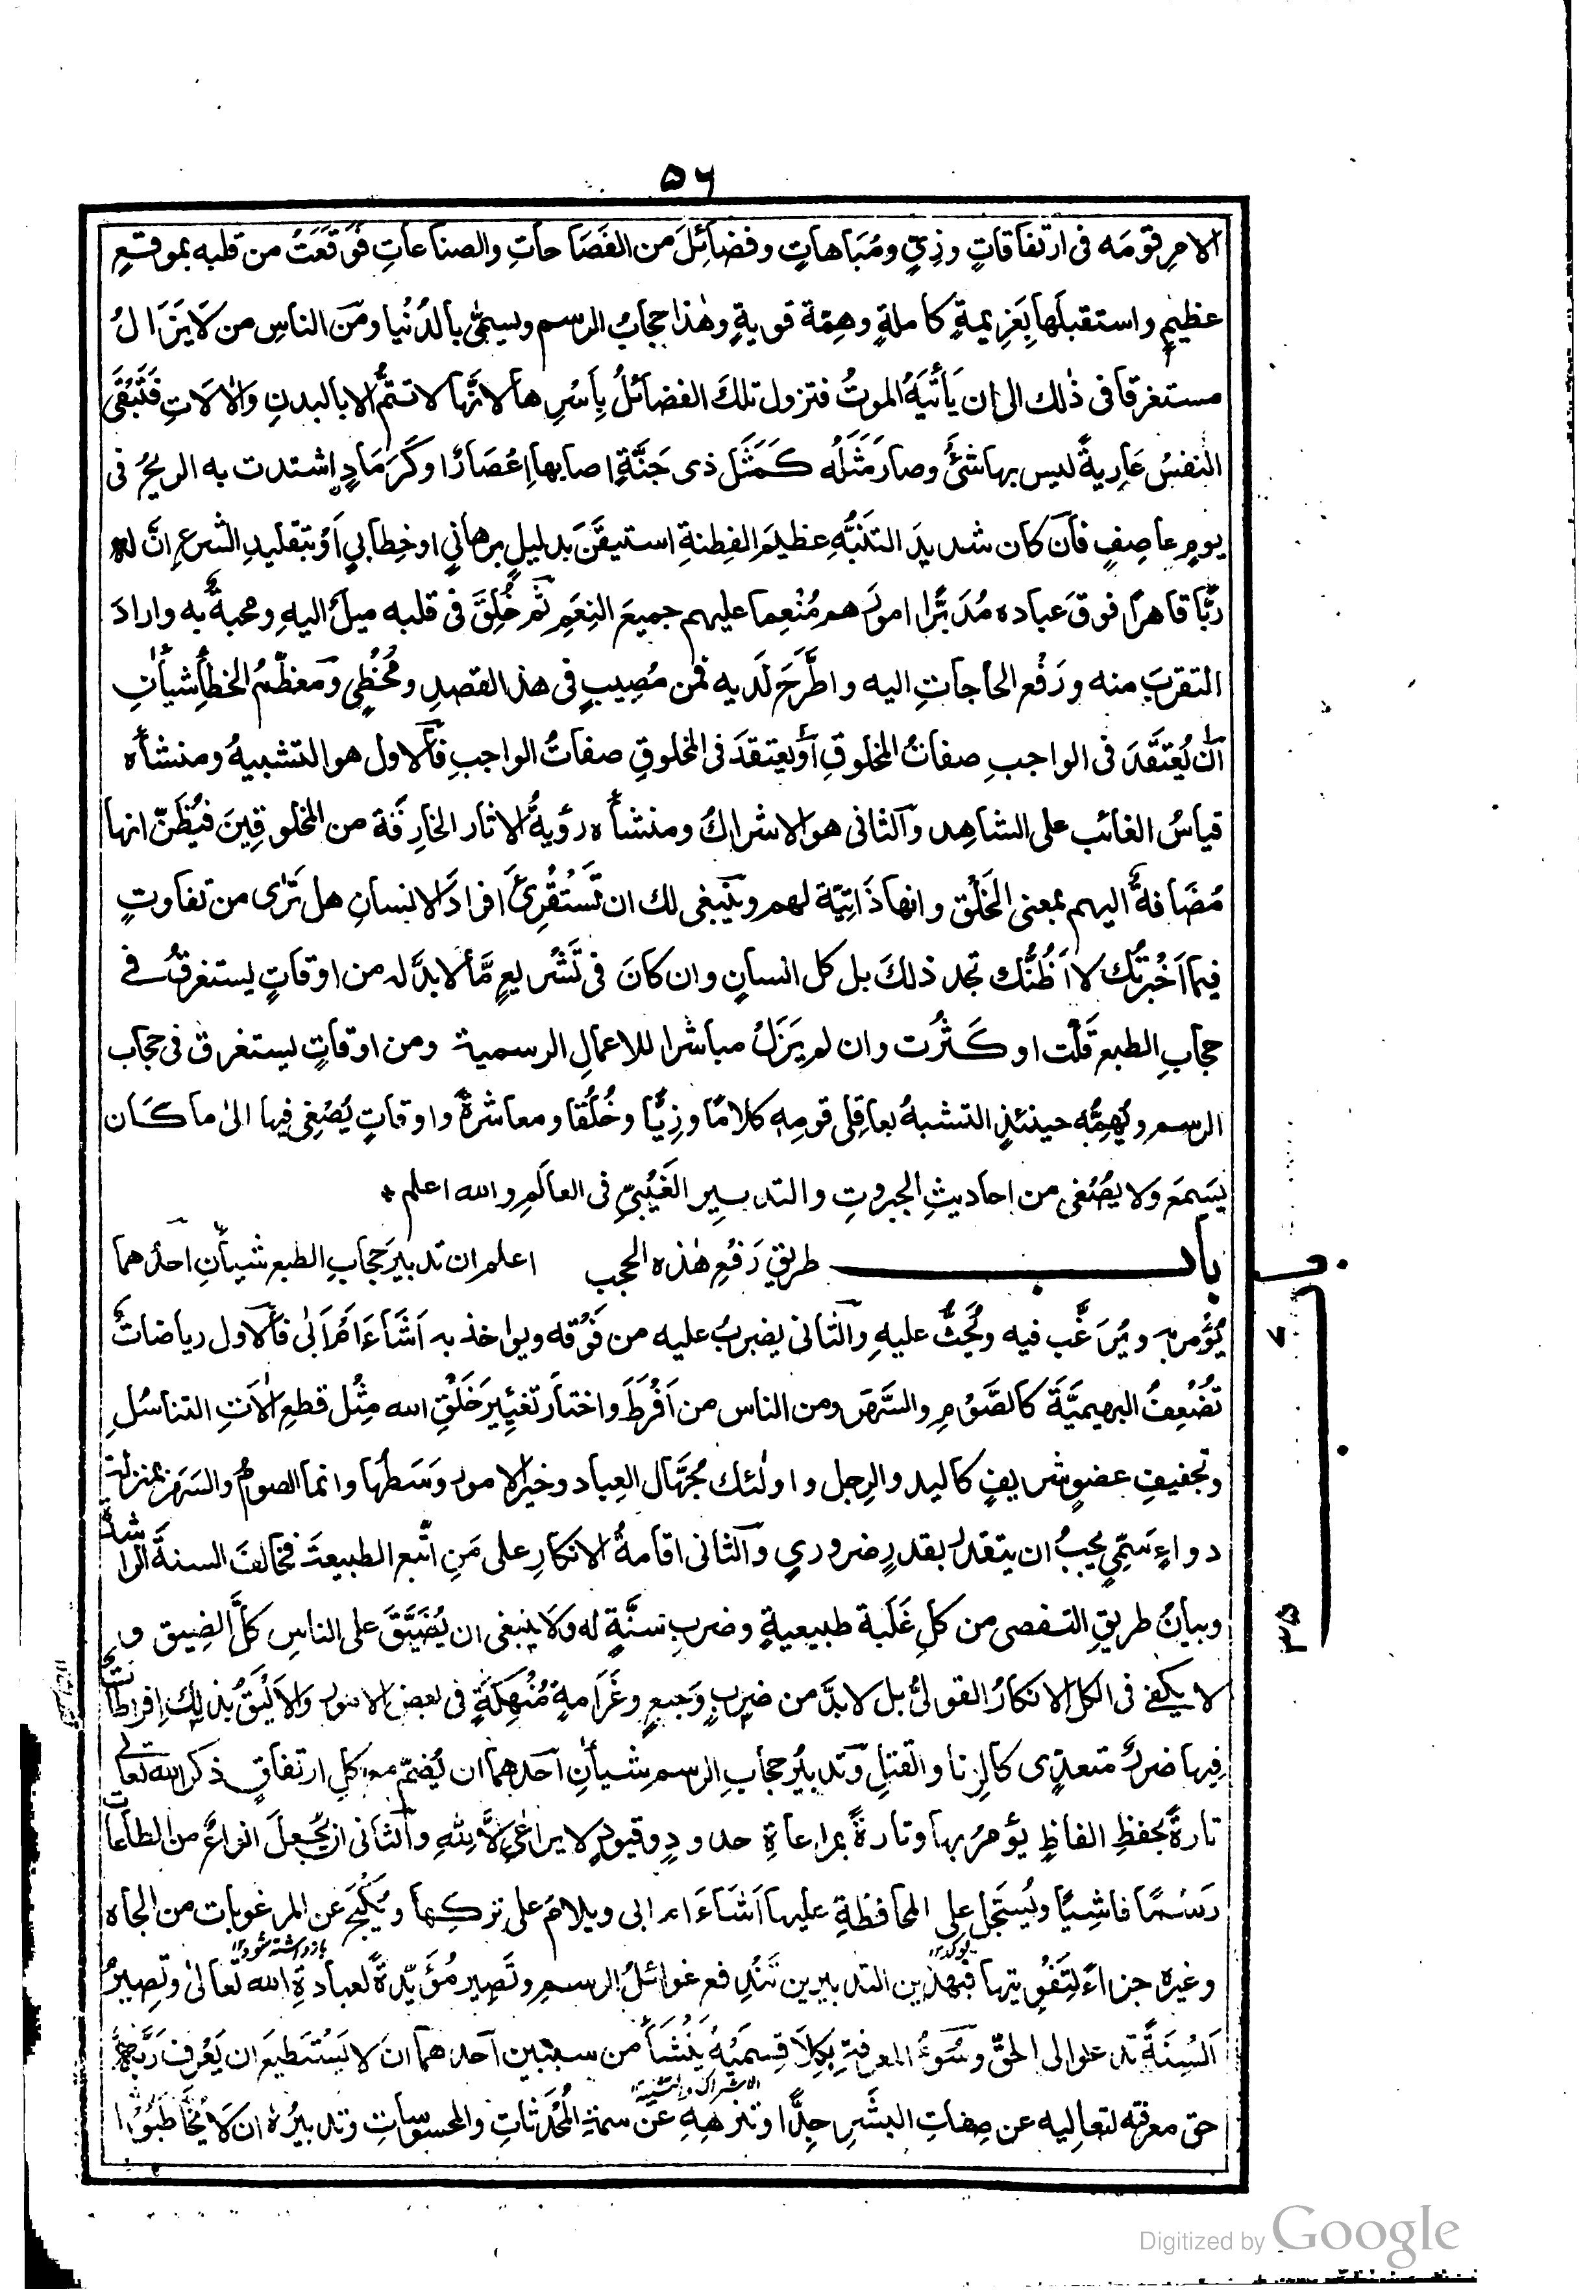 ۵۶
الامرِ قومَه فى ارتفاقاتٍ وزِىٍّ ومُبَاهاتٍ وفضائِلَ من الفَصَاحاتِ والصناعاتِ فَوَقَعَتْ من قلبه بموقعٍ
عظيمٍ واستقبلَها بِعَزِيمةٍ كاملةٍ وهِمّة قويةٍ وهٰذا حجابُ الرسم ويسمّٰى بالدُنْيا ومَن الناسِ من لَا يَزَالُ
مستغرقا فى ذٰلك الى ان يَأْتيَهُ الموتُ فتزول تلكَ الفضائلُ بِأَسْرِها لانّها لا تتمُّ الا بالبدنِ وَالْاٰلَاتِ فَتَبْقَى
النفسُ عَارِيةً ليس بها شئٌ وصارَ مَثَلُه كَمَثَل ذى جَنَّةٍ اصابها اِعْصَارًا وكَرَمَادٍ اشتدت به الريحُ فى
يومٍ عاصِفٍ فآن كان شديدَ التَنبُّهِ عظيمَ الفِطنةِ استيقَنَ بدليلٍ برهانيٍ او خِطابيٍ اَوْ بتقليدِ الشرعِ انَّ له
ربًّا قاهرًا فوقَ عباده مُدَبّرًا امورَهم مُنْعِما عليهم جميعَ النِعَمِ ثم خُلِقَ فى قلبه ميلٌ اليهِ ومحبةٌ به وارادَ
التقربَ منه ورَفْع الحاجاتِ اليه واطَّرَحَ لَديه فمن مُصِيبٍ فى هذا القصدِ ومُخْطِئٍ ومعظّمُ الخطأِ شيأٰنِ
آن يُعْتقَدَ فى الواجبِ صفاتُ المخلوقِ أو يعتقدَ فى المخلوقِ صفاتُ الواجبِ فآلاول هو التشبيهُ ومنشأه
قياسُ الغائب على الشاهِد وآلثانى هو الاشراكُ ومنشأه رؤيةُ الاثار الخارِقة من المخلوقِينَ فيُظَنّ انها
مُضَافةٌ اليهم بمعنى الخَلْق وانها ذَاتِيّة لهم وينبغى لك ان تَسْتَقْرِئَ افرادَ الانسانِ هل تَرٰى من تفاوتٍ
فيما اَخْبرتُك لا اَظُنُّك تجد ذلكَ بل كل انسانٍ وان كانَ فى تَشْريعٍ مَّا لا بدَّ له من اوقاتٍ يستغرقُ فے
حجابِ الطبع قَلَّت او كَثُرَت وان لم يَزَلْ مباشرا للاعمالِ الرسمية ومن اوقاتٍ يستغرق فى حجاب
الرسم ويُهِمُّه حينئذٍ التشبهُ بعاقِلى قومِه كلامًا وزِيًّا وخُلُقا ومعاشرةً واوقاتٍ يُصْغِى فيها الىٰ ما كان
يَسمعَ ولا يصْغى من احاديثِ الجبروتِ والتدبيرِ الغَيْبىِّ فى العالَمِ والله اعلم *
باب طريقِ رَفْعِ هٰذه الحجب اعلم ان تدبيرَ حجابِ الطبعِ شيأنِ احدُهما
يُؤْمر بہ ويُرَغَّب فيه ويُحَثُّ عليهِ وآلثانى يضربُ عليه من فَوْقه ويواخذ بہ اَشَاءَ اَمْ اَبٰى فآلاول رياضاتٌ
تُضْعِفُ البهيميَّةَ كالصَّوْمِ والسَّهَر ومن الناس من اَفْرَطَ واختار تغئيرَ خَلْقِ الله مِثْل قطعِ اٰلاٰتِ التناسُلِ
وتجفيفِ عضوٍ شريفٍ كاليد والرِجل واولٰئك جُهَّال العِباد وخيرُ الامور وَسَطُها وانما الصومُ والسَهَر بمنزلة
دواءٍ سَمِّيٍ يجبُ ان يتقدر بقدرٍ ضروريٍ وآلثانى اقامةُ الانكارِ على مَنِ اتّبع الطبيعةَ فخالفَ السنةَ الراشدةَ
وبيانُ طريقِ التفصى من كلِ غَلَبة طبيعيةٍ وضربِ سنَّةٍ له ولا ينبغى ان يُضيَّقَ على الناسِ كلَّ الضِيق و
لا يكفے فى الكل الانكارُ القولىُّ بل لا بدَّ من ضربٍ وَجيعٍ وغَرَامةٍ مُنْهِكَةٍ فى بعض الامور والاَلْيَقُ بذلِكَ اِفراطاتٌ
فِيها ضررٌ متعدٍّى كالزِنا والقتلِ وتدبيرُ حجابِ الرسم شيأنِ اَحدهما ان يُضمّ مع كلِ ارتفاقٍ ذكرُ الله تعالٰے
تارةً بحفظِ الفاظٍ يؤمرُ بها وتارةً بمراعاةِ حدودٍ وقيودٍ لا يراعٰى اِلاَّ لِلّٰهِ وآلثانى ان يُجعلَ انواعٌ من الطاعات
رَسْمًا فاشِيًا ويُسَجّل على المحافظةِ عليها اَشَاءَ ام ابى ويلامَ على تركِها ويُكْبَحَ عن المرغوبات من الجاه
بازداشته شود١٢
وغيرہ جزاءً لِتَفْوِيتها فبهذين التدبيرين تَنْدفع غوائلُ الرسمِ وتَصِير مُؤيّدةً لعبادةِ الله تعالٰى وتصِيرُ
اَلْسِنَةً تدعو الى الحقّ وسُوْءُ المعرفةِ بكِلَا قِسمَيْهِ يَنْشأ من سببين اَحدهما اَن لا يَسْتَطيعَ ان يَعْرِف رَبَّه
الاشراك والتشبيه١٢
حق معرفته لتعاليه عن صِفاتِ البشَرِ جِدًّا وتنزهِهِ عن سمة المُحْدَثاتِ والمحسوساتِ وتدبيرُہ ان لَا يُخَاطَبُوْا
Digitized by Google